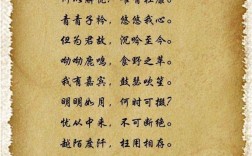 青青子衿，悠悠我心。
但为君故，沉吟至今。
呦呦鹿鸣，食野之苹。
我有嘉宾，鼓瑟吹笙。
明明如月，何时可掇？
忧从中来，不可断绝。
越陌度阡，枉用相存。